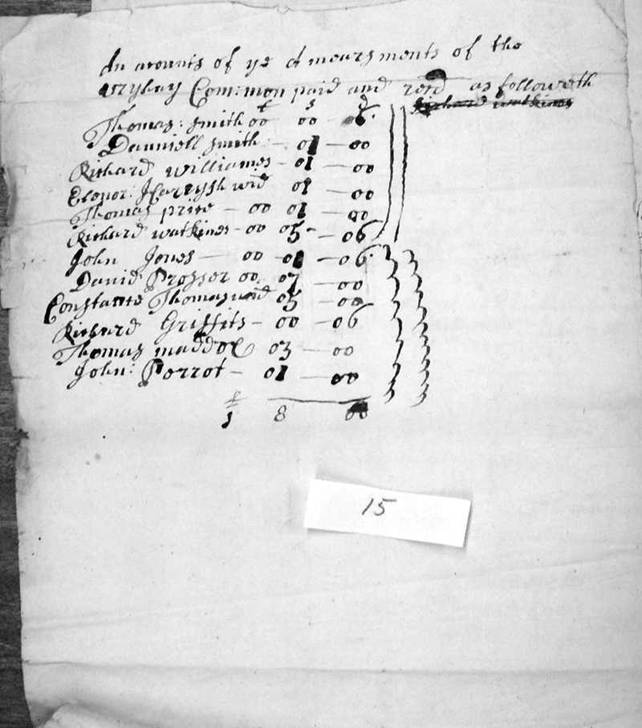 An acounts of ye Amearsments of the
Common paid and as followeth
£ s d
Thomas: Smith 00 00 06
Daniell Smith - 01 - 00
Richard williames - 01 - 00
Elonor: wid 01 - 00
Thomas price - 00 01 - 00
Richard watkines - 00 05 - 06
John Jones - 00 01 - 06
David Prosser 00 07 - 00
Constante Thomas wid 05 - 00
Richard Griffits - 00 - 06
Thomas maddox 03 - 00
John: Parrot - 01 - 00
£
1 8 00
15